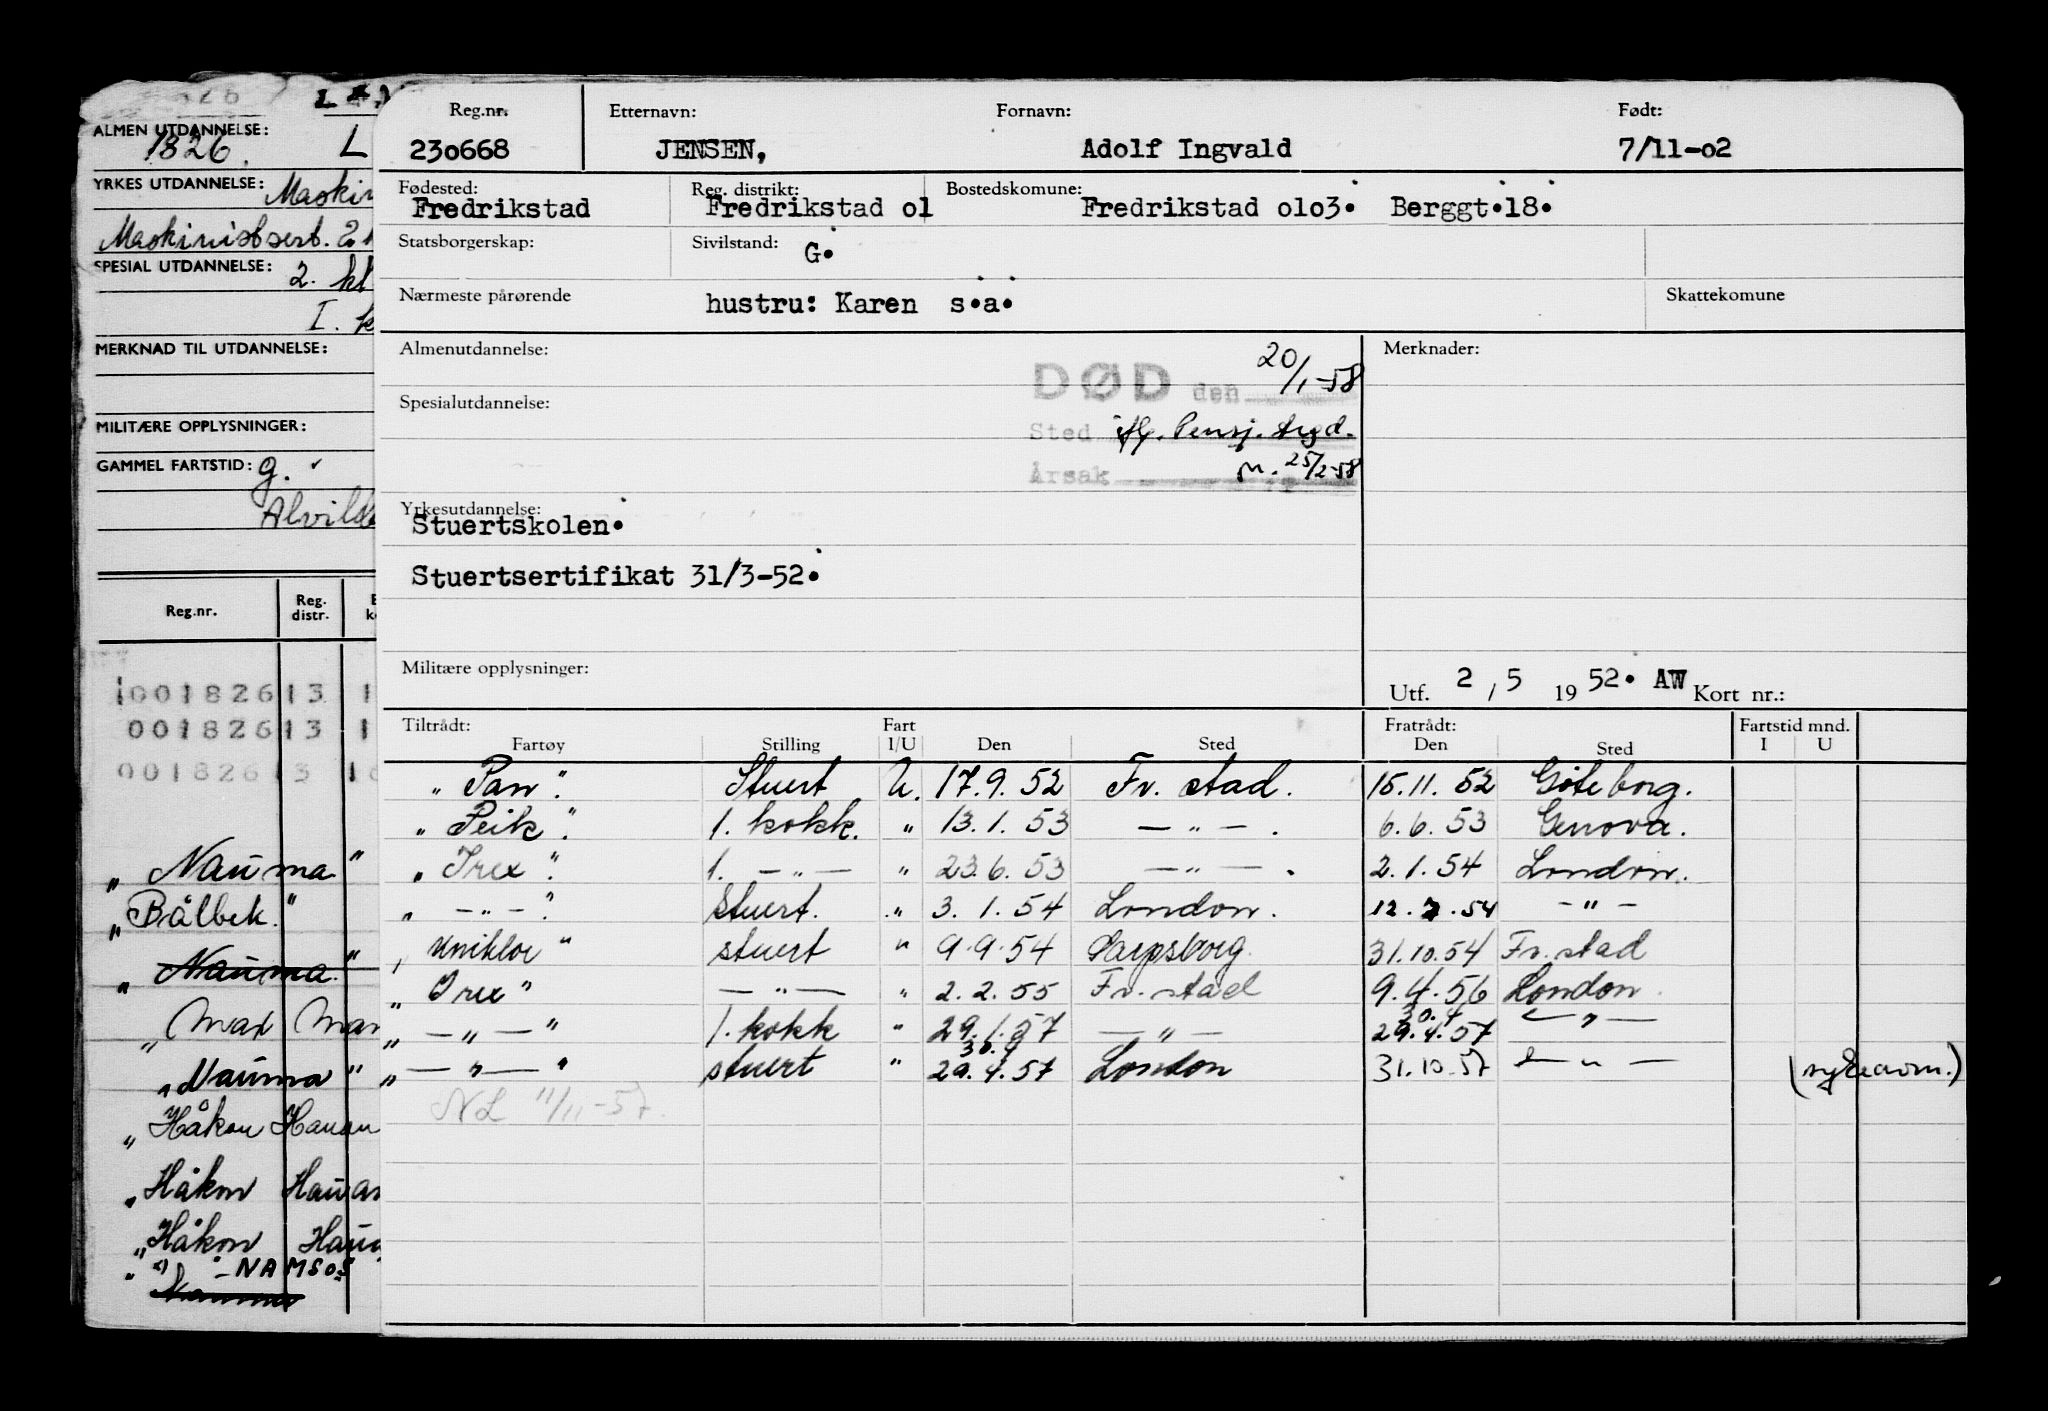 ALMEN UTDANNELSE:
1826. L
YRKES UTDANNELSE:
SPESIAL UTDANNELSE:
2. kl
I. k
MERKNAD TIL UTDANNELSE:
MILITÆRE OPPLYSNINGER:
GAMMEL FARTSTID: g.
Reg.nr. Reg. distr.
001826 13 1
001826 13 1
001826 13 1
„ Nauma "
„ Bålbek. "
„ Nauma. "
„ Max Man
„ Nauma "
„ Håkon Hauan
„ Håkon Hauan
„ Håkon Haua
„ " - NAMSOS
Nauma
Reg.nr. Etternavn: Fornavn: Født:
230668 JENSEN, Adolf Ingvald 7/11-02
Fødested: Reg. distrikt: Bostedskomune:
Fredrikstad Fredrikstad 01 Fredrikstad 0103. Berggt.18.
Statsborgerskap: Sivilstand: G.
Nærmeste pårørende hustru: Karen s.a. Skattekomune
Almenutdannelse: Merknader:
DØD den 20/1-58
Spesialutdannelse:
Sted iflg. Pensj. trygd.
Årsak m. 25/2-58
Yrkesutdannelse:
Stuertskolen.
Stuertsertifikat 31/3-52.
Militære opplysninger:
Utf. 2 / 5 19 52. AW Kort nr.:
Tiltrådt: Fart Fratrådt: Fartstid mnd.
Fartøy Stilling I/U Den Sted Den Sted I U
„ Pan ". Stuert U. 17.9.52 Fr. stad. 15.11.52 Göteborg.
„ Peik ". 1. kokk. " 13.1.53 — " — . 6.6.53 Genova.
„ Irex ". 1. — " — " 23.6.53 — " — . 2.1.54 London.
„ — " — ". Stuert. " 3.1.54 London. 12.7.54 — " —
„ Knikloe " stuert " 9.9.54 Sarpsborg. 31.10.54 Fr. stad
„ Irex " — " — " 2.2.55 Fr. stad 9.4.56 London.
„ — " — " 1. kokk " 29.1.57 — " — 30.4 29.4.57 — " —
„ — " — " stuert " 30.4 29.4.57 London 31.10.57 — " — (sykeavm.)
NL 11/11-57.